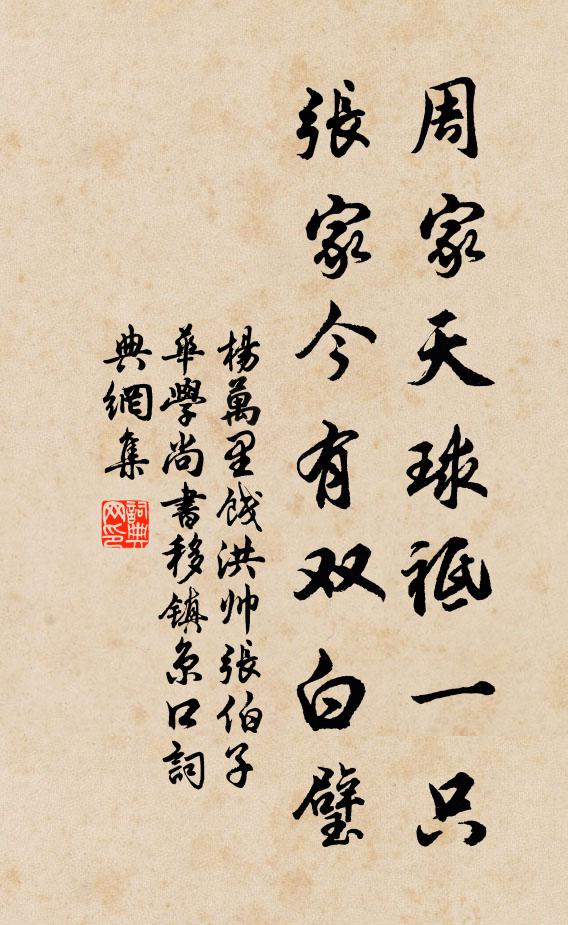 周家天球祗一只
張家今有双白璧
楊萬里餞洪帅張伯子
華學尚書移镇京口詞
典網集
詞典网印